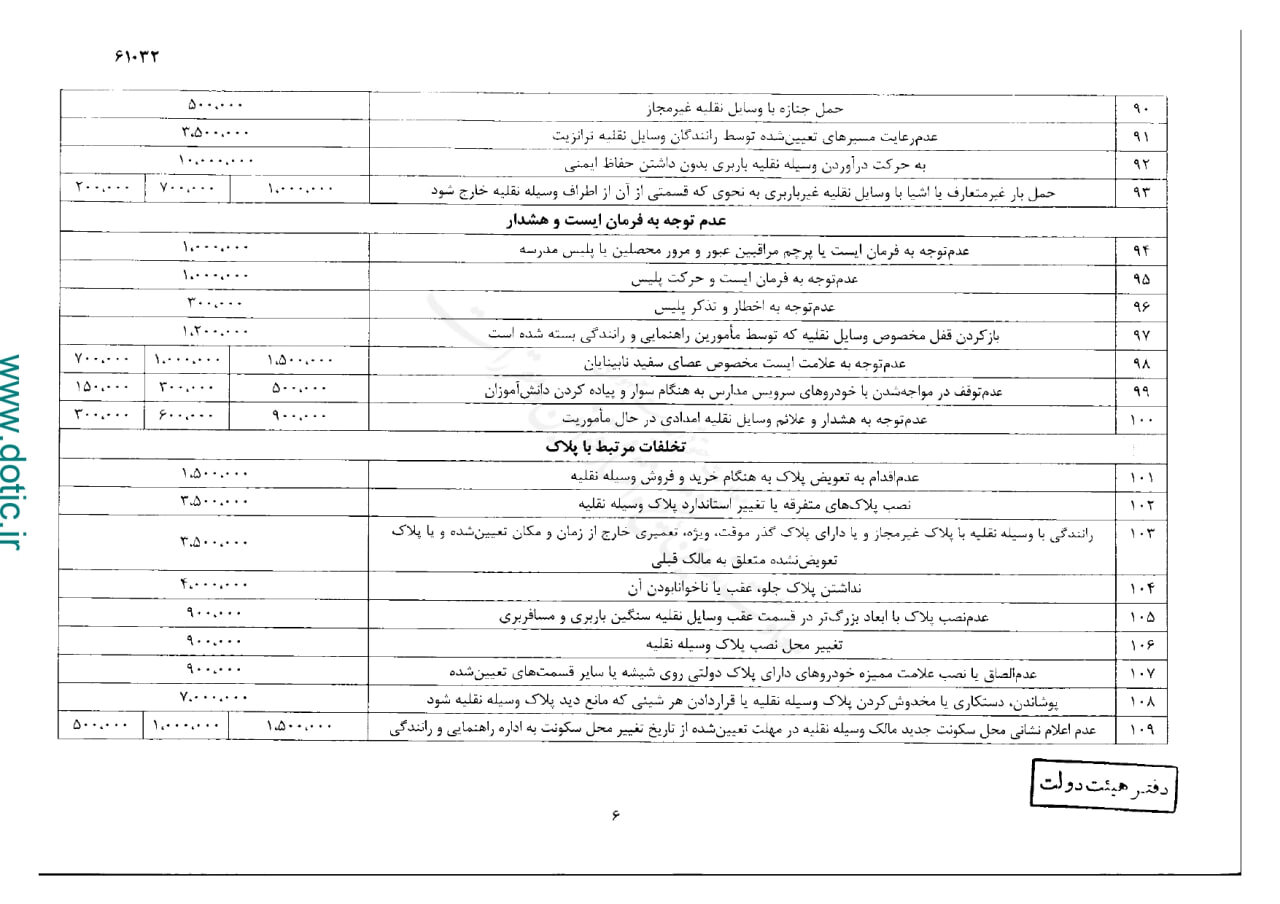 ۶۱۰۳۲
۹۰ حمل جنازه با وسایل نقلیه غیرمجاز ۵۰۰,۰۰۰
۹۱ عدم‌رعایت مسیرهای تعیین‌شده توسط رانندگان وسایل نقلیه ترانزیت ۳,۵۰۰,۰۰۰
۹۲ به حرکت درآوردن وسیله نقلیه باربری بدون داشتن حفاظ ایمنی ۱۰,۰۰۰,۰۰۰
۹۳ حمل بار غیرمتعارف یا اشیا با وسایل نقلیه غیرباربری به نحوی که قسمتی از آن از اطراف وسیله نقلیه خارج شود ۱,۰۰۰,۰۰۰ ۷۰۰,۰۰۰ ۲۰۰,۰۰۰
عدم توجه به فرمان ایست و هشدار
۹۴ عدم‌توجه به فرمان ایست یا پرچم مراقبین عبور و مرور محصلین یا پلیس مدرسه ۱,۰۰۰,۰۰۰
۹۵ عدم‌توجه به فرمان ایست و حرکت پلیس ۱,۰۰۰,۰۰۰
۹۶ عدم‌توجه به اخطار و تذکر پلیس ۳۰۰,۰۰۰
۹۷ بازکردن قفل مخصوص وسایل نقلیه که توسط مأمورین راهنمایی و رانندگی بسته شده است ۱,۲۰۰,۰۰۰
۹۸ عدم‌توجه به علامت ایست مخصوص عصای سفید نابینایان ۱,۵۰۰,۰۰۰ ۱,۰۰۰,۰۰۰ ۷۰۰,۰۰۰
۹۹ عدم‌توقف در مواجه‌شدن با خودروهای سرویس مدارس به هنگام سوار و پیاده کردن دانش‌آموزان ۵۰۰,۰۰۰ ۳۰۰,۰۰۰ ۱۵۰,۰۰۰
۱۰۰ عدم‌توجه به هشدار و علائم وسایل نقلیه امدادی در حال مأموریت ۹۰۰,۰۰۰ ۶۰۰,۰۰۰ ۳۰۰,۰۰۰
تخلفات مرتبط با پلاک
۱۰۱ عدم‌اقدام به تعویض پلاک به هنگام خرید و فروش وسیله نقلیه ۱,۵۰۰,۰۰۰
۱۰۲ نصب پلاک‌های متفرقه یا تغییر استاندارد پلاک وسیله نقلیه ۳,۵۰۰,۰۰۰
۱۰۳ رانندگی با وسیله نقلیه با پلاک غیرمجاز و یا دارای پلاک گذر موقت، ویژه، تعمیری خارج از زمان و مکان تعیین‌شده و یا پلاک
تعویض‌نشده متعلق به مالک قبلی ۳,۵۰۰,۰۰۰
۱۰۴ نداشتن پلاک جلو، عقب یا ناخوانابودن آن ۴,۰۰۰,۰۰۰
۱۰۵ عدم‌نصب پلاک با ابعاد بزرگ‌تر در قسمت عقب وسایل نقلیه سنگین باربری و مسافربری ۹۰۰,۰۰۰
۱۰۶ تغییر محل نصب پلاک وسیله نقلیه ۹۰۰,۰۰۰
۱۰۷ عدم‌الصاق یا نصب علامت ممیزه خودروهای دارای پلاک دولتی روی شیشه یا سایر قسمت‌های تعیین‌شده ۹۰۰,۰۰۰
۱۰۸ پوشاندن، دستکاری یا مخدوش‌کردن پلاک وسیله نقلیه یا قراردادن هر شیئی که مانع دید پلاک وسیله نقلیه شود ۷,۰۰۰,۰۰۰
۱۰۹ عدم اعلام نشانی محل سکونت جدید مالک وسیله نقلیه در مهلت تعیین‌شده از تاریخ تغییر محل سکونت به اداره راهنمایی و رانندگی ۱,۵۰۰,۰۰۰ ۱,۰۰۰,۰۰۰ ۵۰۰,۰۰۰
دفتر هیئت دولت
۶
www.dotic.ir